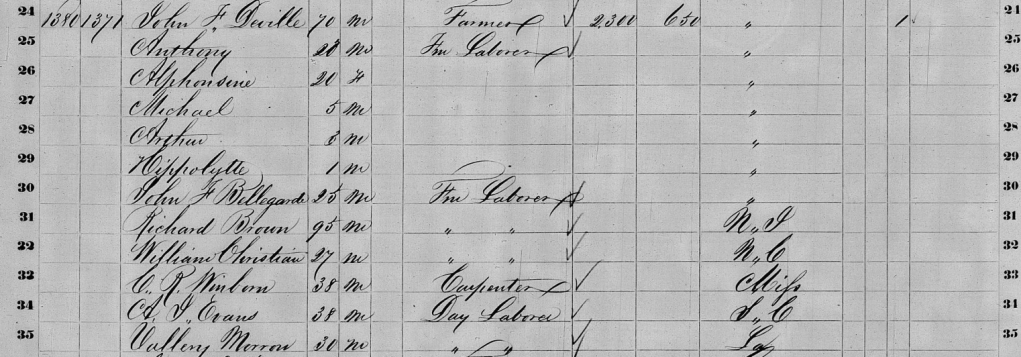 24 1380 1371 John F. Deville 70 m Farmer 2,300 650 " 1 24
25 Anthony m Fm Laborer " 25
26 Alphonsine 20 f " 26
27 Michael 5 m " 27
28 Arthur 3 m " 28
29 Hippolytte 1 m " 29
30 John F Bellegarde 25 m Fm Laborer " 30
31 Richard Brown 95 m " " 31
32 William Christian 27 m " " N,, C 32
33 C. R. Winborn 38 m Carpenter Miss 33
34 A. J. Evans 38 m Day Laborer S,, C 34
35 Vallery Morrow 30 m " " La 35